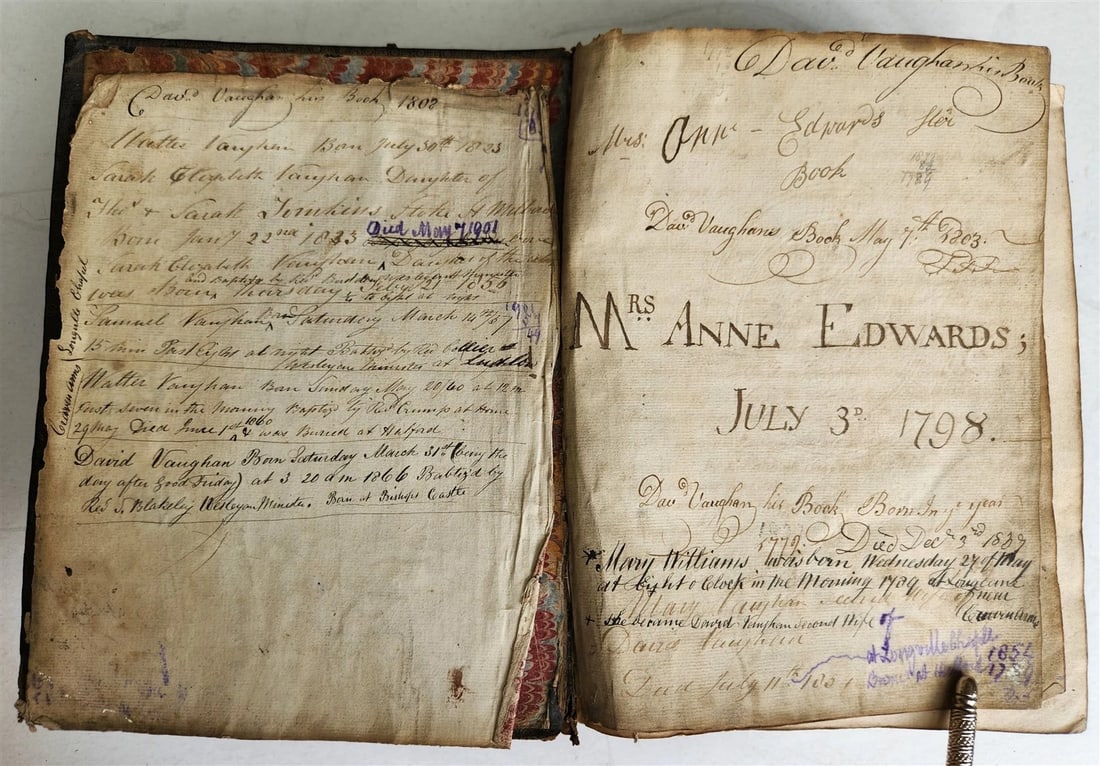 Davd. Vaughan his Book 1802
Walter Vaughan Born July 30th 1823
Sarah Elizabeth Vaughan Daughter of
Thos. & Sarah Tomkins Stoke St Milbro
Born Jany 22nd 1833 Died May 7 1901
Sarah Elizabeth Vaughan, Daughter of the
and Baptized by Revd.
was Born Thursday Feby 21 1856
to Eight at night
Samuel Vaughan Saturday March 14th/57
15 min Past Eight at night Baptized by Revd Collier
Wesleyan Minister at Ludlow
Walter Vaughan Born Sunday May 20/60 at 12 m
Past seven in the Morning Baptizd by Revd Crump at Home
29 May Died June 1st 1860 & was Buried at Halford
David Vaughan Born Saturday March 31st (being the
day after Good Friday) at 3 20 am 1866 Babtizd by
Revd J. Blakeley Wesleyan Minister. Born at Bishops Castle
Cravenarms Longville Chapel
Davd. Vaughan his Book
Mrs: Ann - Edwards Her
Book
1789
Davd Vaughans Book May 7th 1803.
MRS ANNE EDWARDS;
JULY 3D. 1798.
Davd Vaughan his Book Born In ye year
1779. Died Decr 3rd 1837
Mary Williams was born Wednesday 27 of May
at Eight o Clock in the Morning 1789 at Longlane
near
Mary Vaughan second Wife of
Cravenarms
+ she became David Vaughan second Wife
David Vaughan
Died July 11th 1851
at Longville Chapel
1854
Born at